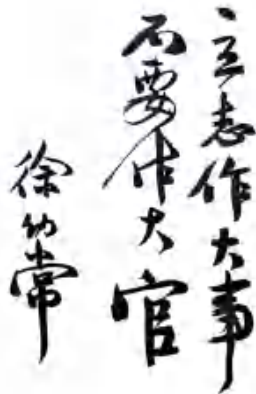 立志作大事
不要作大官
徐幼常